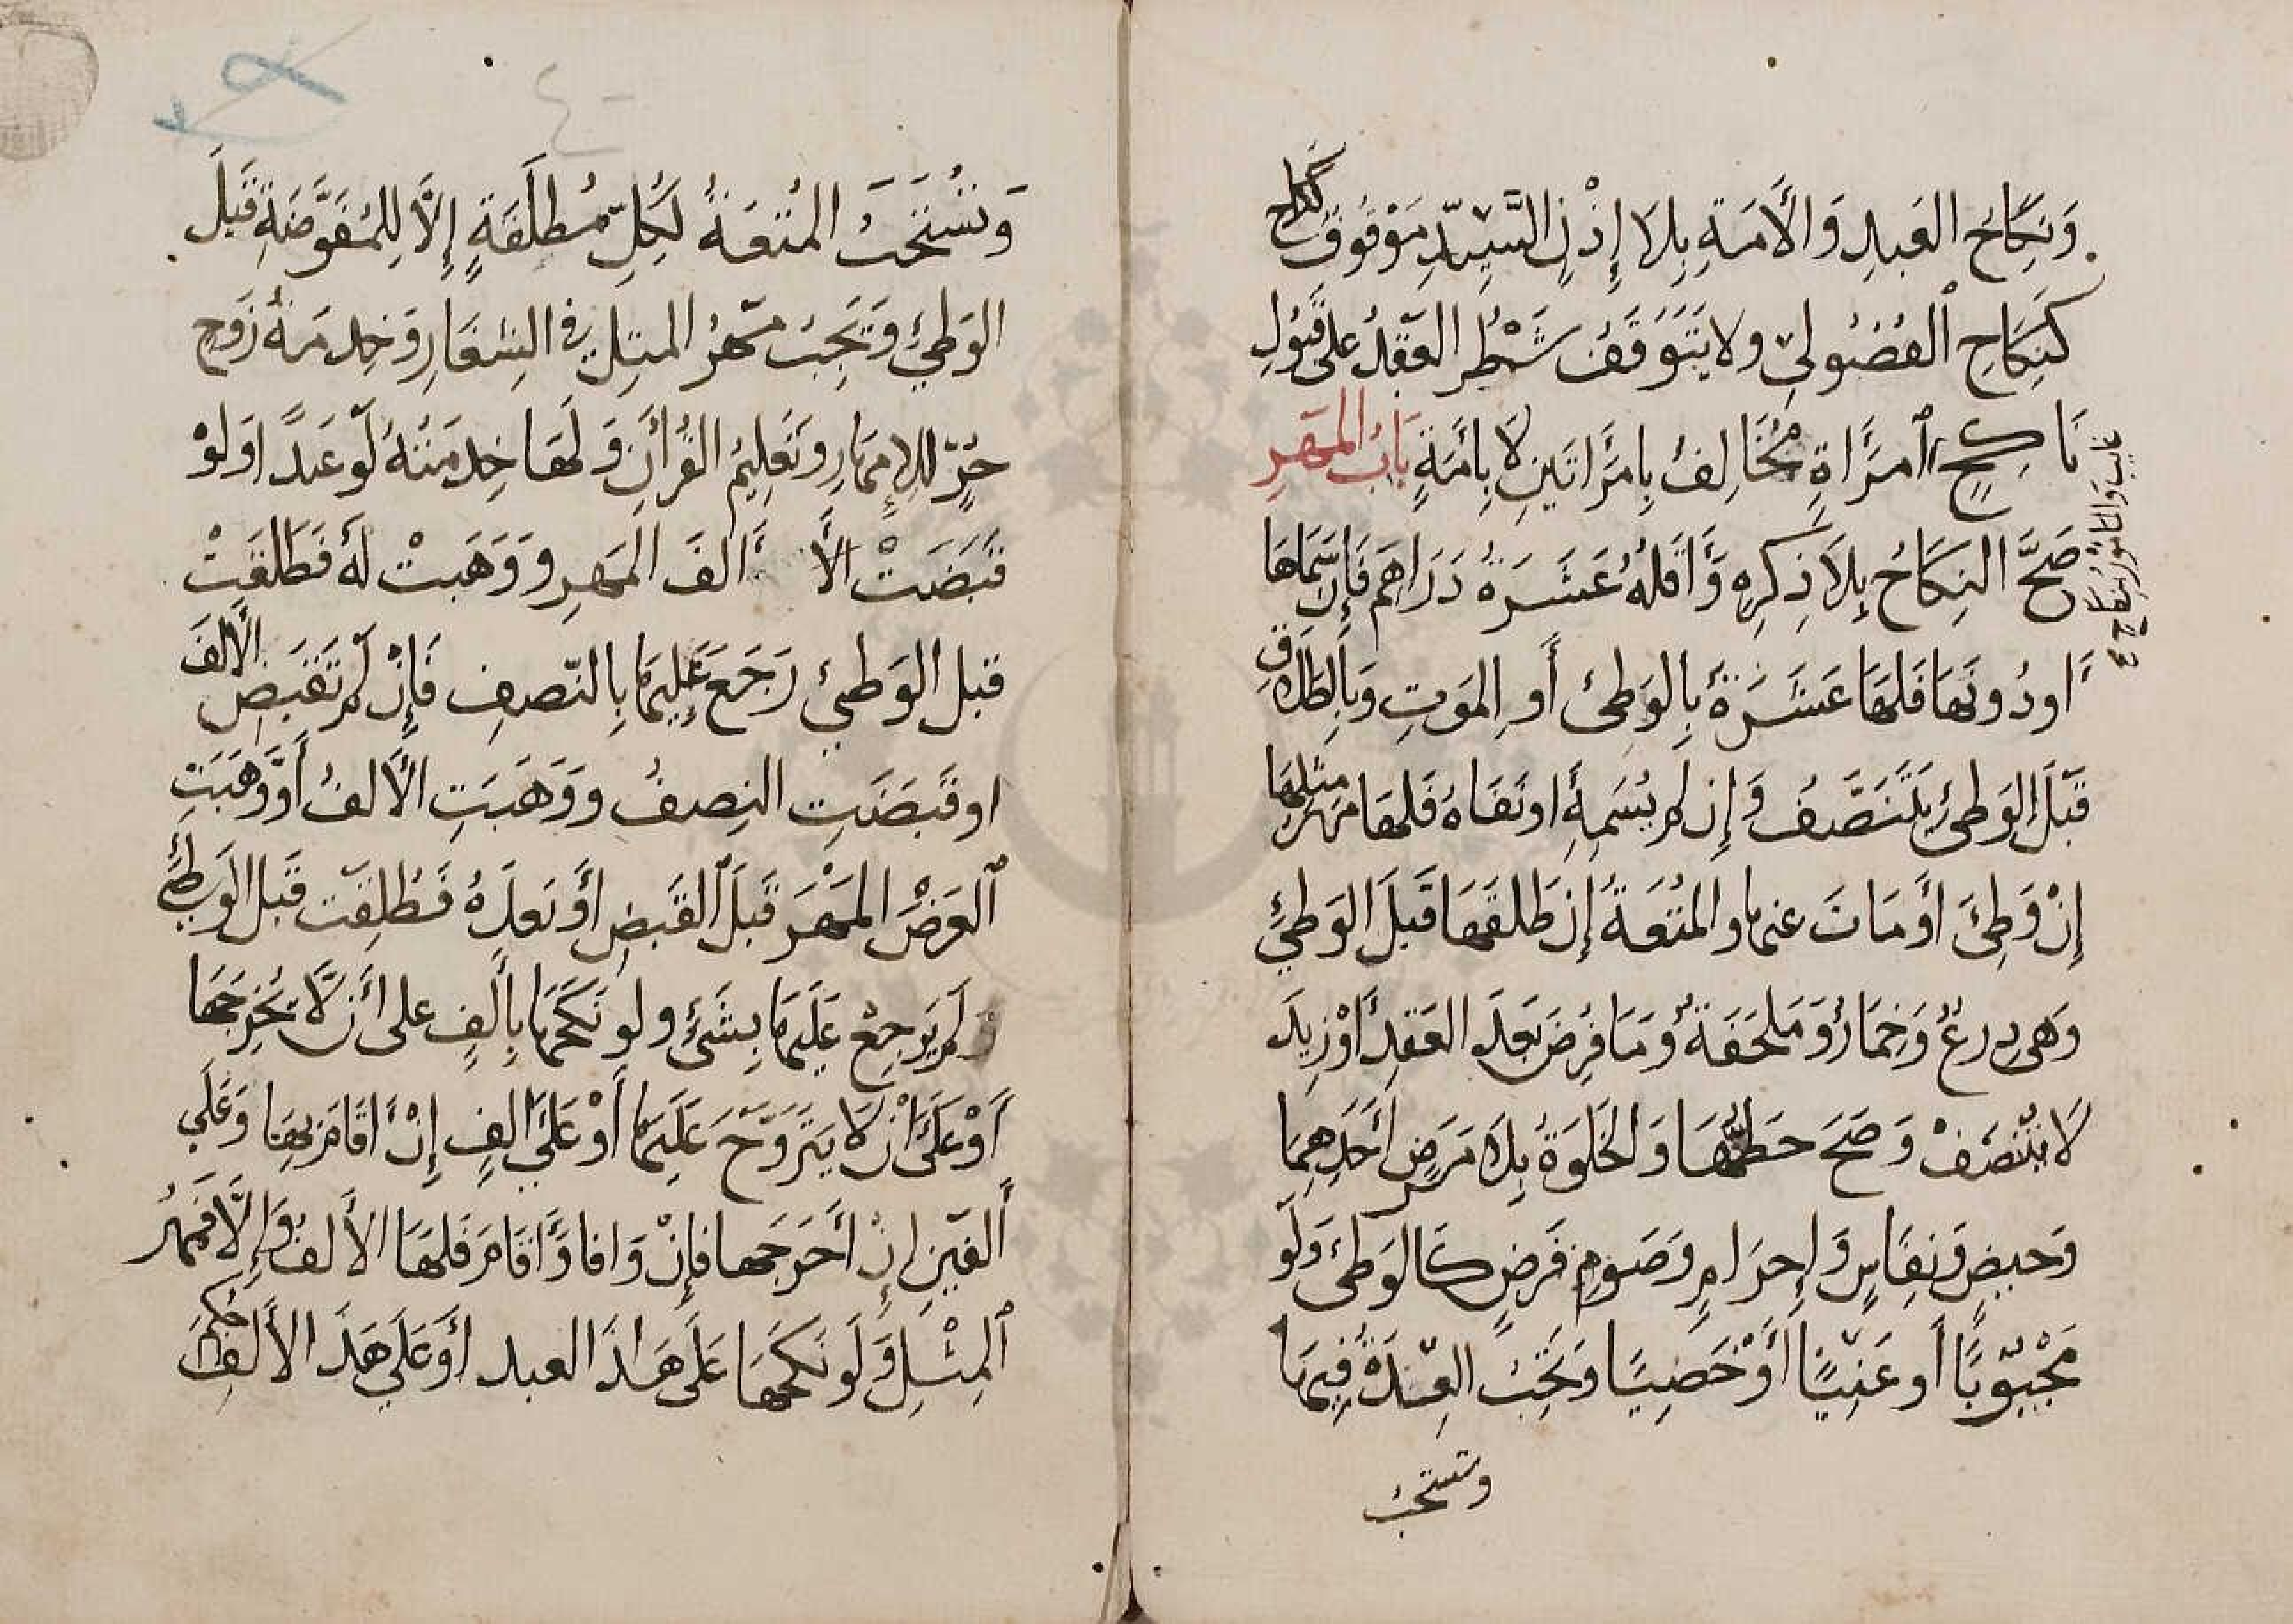 وَنِكَاحُ العَبدِ وَالأَمَةِ بِلَا إِذْنِ السَّيِدِّ مَوْقُوفٌ كَنِكَاحِ
كَنِكَاحِ الفُضُولِيِّ ولا يَتَوَقَفُ شَطْرُ العَقْدِ عَلى قَبُولِ
نَاكِحٍ امرَأةٍ مُخَالِفُ بِامرَاتَينِ لَا بِأمَةٍ بَابُ المَهرِ
غايب والمأمور بنكاح صح
صَحَّ النِكَاحُ بِلَا ذِكرِهِ وَأَقلهُ عَشَرَةُ دَرَاهِم فَإِن سَمَاهَا
اودُونَهَا فَلَهَا عَشَرَةٌ بِالوَطِئ أَوِ المَوتِ وَبِالطَلَاقِ
قَبلَ الوَطِئ يَتَنَصَّفُ وَإِن لَم يُسَمِهِ اونَفَاهُ فَلَهَا مَهرُ مِثلِهَا
إِنْ وَطِئَ أَومَاتَ عَنها والمُتعَةُ إِن طَلقَهَا قَبلَ الوَطئِ
وَهى دِرعٌ وَخِمَارٌ وَمَلحَفَةٌ وَمَا فُرِضَ بَعدَ العَقدِ أَوْزِيدَ
لَا يَتَنَصَفْ وَصَحَ حَطهَا وَالخَلوَةُ بِلَا مَرَضِ أَحَدِهِمَا
وَحيضٍ وَنِفَاسٍ وَإِحرَامٍ وَصَومِ فَرضٍ كَالوَطئ وَلَو
مَجْبُوبًا أو عَنِينًا أَوْخَصِيًا وَتَجِبُ العِدَةُ فِيهَا
وتستحب
وَتُستَحَبُ المُتعَةُ لِكُلِّ مُطَلَقَةٍ إِلَّا لِلمُفَوَّضَةِ قَبلَ
الوَطئِ وَيَجِبُ مَهرُ المثِلِ فِى الشِغَارِ وَخِدمَةُ زَوجٍ
حُرٍّ للإمهَارِ وَتَعلِيمُ القُرأَنِ وَلَهَا خِدمَتُهُ لَو عَبدًا وَلَوْ
قَبَضَتْ ألفَ المَهرِ وَوَهَبتْ لَهُ فَطَلقَتْ
قبل الوَطئ رَجَعَ عَليهَا بِالنّصفِ فَإِنْ لَم تَقبَضِ الأَلفَ
اوقَبَضَتِ النِصفُ وَوَهَبَتِ الأَلفُ أَووَهَبَتِ
العَرَضَ المَهْرَ قَبلَ القَبضِ أَوبَعدَهُ فَطُلِقَت قَبل الوَطئِ
لَم يَرجِعْ عَلَيهَا بِشَئٍ ولو نَكَحَهَا بِأَلفٍ على أَن لَا يُخرِجَهَا
أَوْعَلَى أَنْ لَا يَتَزَوَّجَ عَلَيهَا أَوْعَلَي أَلفٍ إِنْ أَقَامَ بِهَا وَعَلَي
أَلفَينِ إِنْ أَخرَجَهَا فإِنْ وَافا وَأَقَامَ فَلهَا الأَلفُ وَإِلَّا فَمَهرُ
المِثْلِ وَلَو نَكَحَهَا عَلَى هَذَا العبدِ أَوعَلَي هَذَا الأَلفِ حُكِمَ